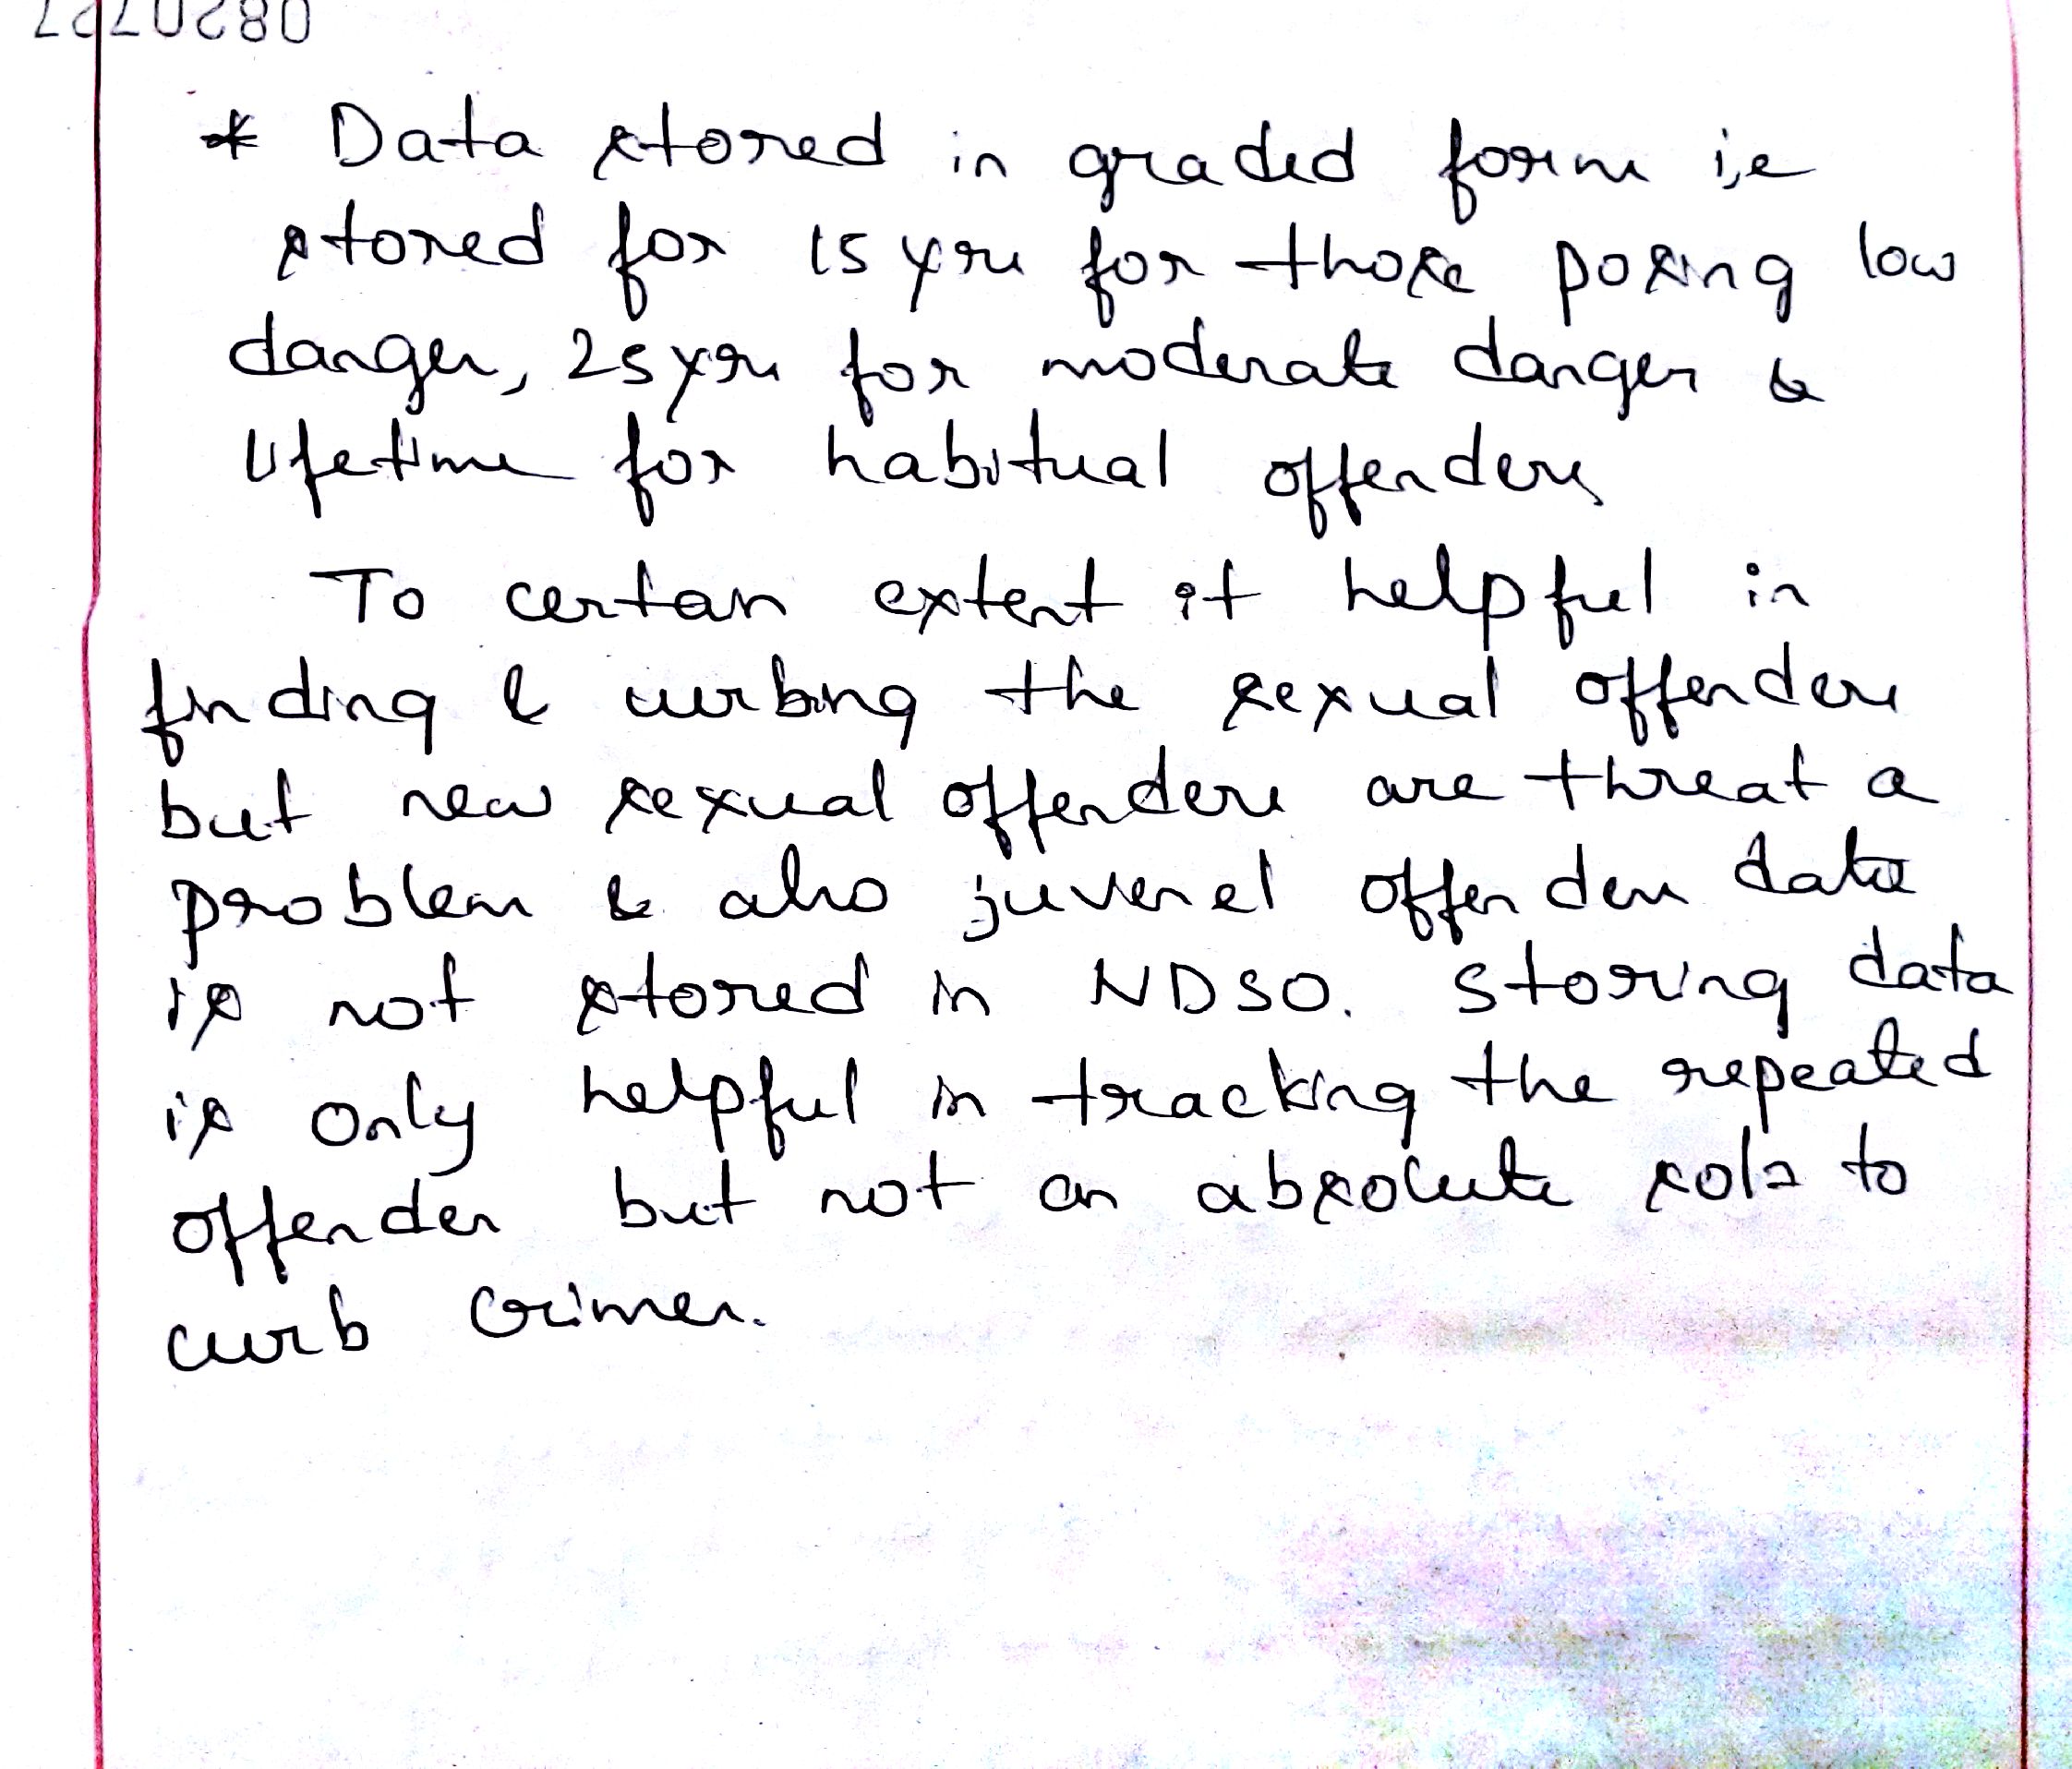 * Data stored in graded form i,e
stored for 15 yrs for those posing low
danger, 25 yrs for moderate danger &
lifetime for habitual offenders
To certain extent it helpful in
finding & curbing the sexual offenders
but new sexual offenders are threat a
problem & also juvenel offenders data
is not stored in NDSO. Storing data
is only helpful in tracking the repeated
offender but not an absolute soln to
curb crimes.